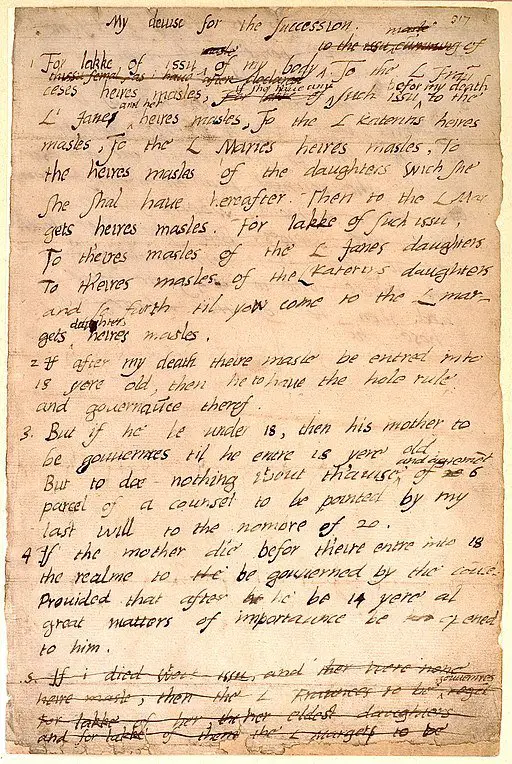 My deuise for the succession. 317
1 For lakke of issu masle of my body to the issu cumming of masle
thissu femal, as i haue after declared To the L Frau
ceses heires masles, if she have any such issu befor my death to the
L' Janes and her heires masles, To the L Katerins heires
masles, To the L Maries heires masles, To
the heires masles of the daughters wich she
she shal haue hereafter. Then to the L Mar
gets heires masles. For lakke of such issu,
To theires masles of the L Janes daughters
To theires masles of the L Katerins daughters
and so furth til yow come to the L mar-
gets daughters heires masles.
2 If after my death theire masle be entred into
18 yere old, then he to haue the hole rule
and gouernaūce therof.
3. But if he be under 18, then his mother to
be gouuernres til he entre 18 yere old
But to doe nothing wtout thauise and agrement of 6
parcel of a counsel to be pointed by my
last will to the nomore of 20.
4 If the mother die befor theire entre into 18
the realme to be gouuerned by the coun
Prouided that after he be 14 yere al
great matters of importaunce be opened
to him.
5. If i died wtout issu, and ther were none
heire masle, then the L Fraunces to be gouuernres
for lakke of her, her eldest daughters
and for lakke of them the L Margets to be